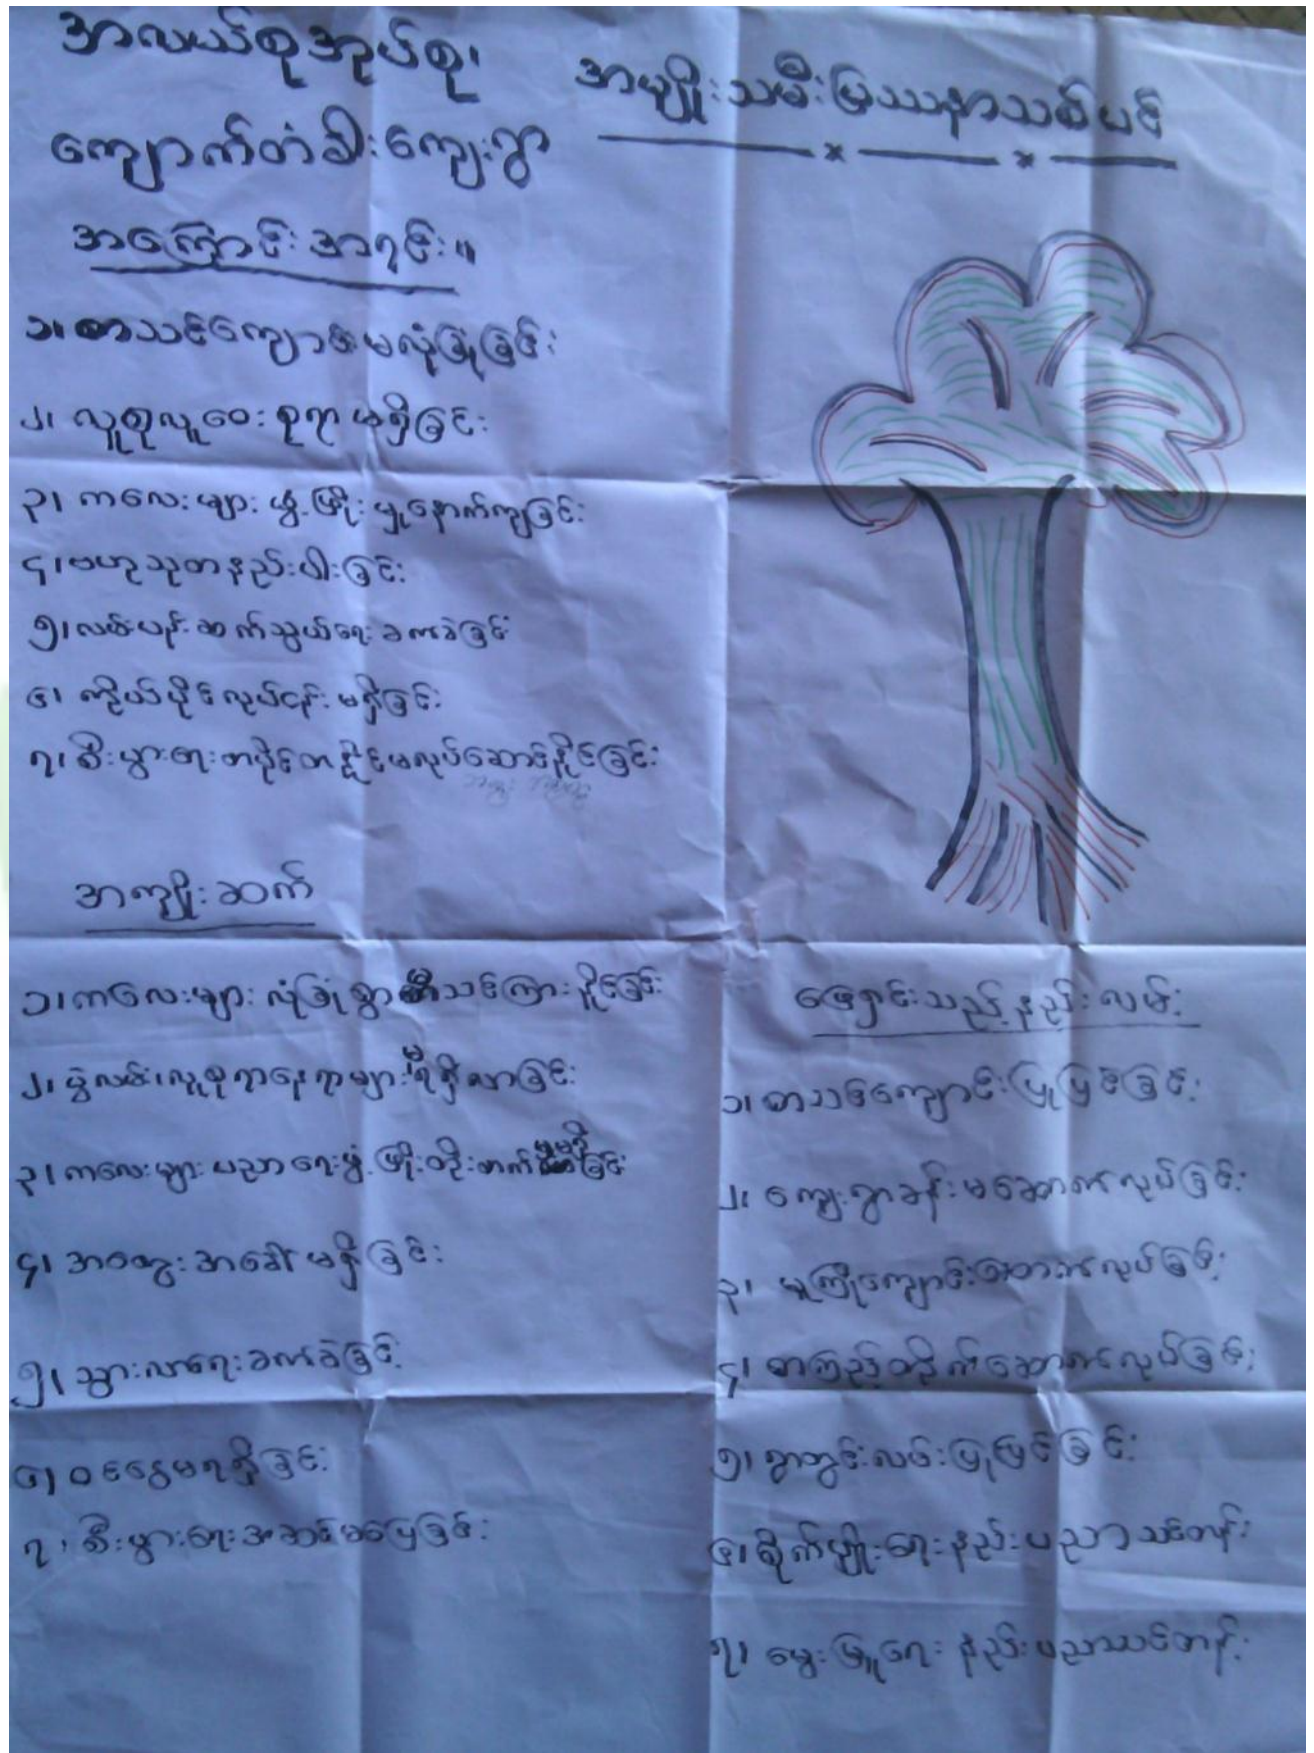 အလယ်စုအုပ်စု၊
ကျောက်တံခါးကျေးရွာ
အမျိုးသမီးပြဿနာသစ်ပင်
အကြောင်းအရင်း။
၁။ စာသင်ကျောင်းမလုံခြုံခြင်း
၂၊ လူစုလူဝေး စုရာမရှိခြင်း
၃၊ ကလေးများ ဖွံ့ဖြိုးမှုနောက်ကျခြင်း
၄၊ ဗဟုသုတနည်းပါးခြင်း
၅၊ လမ်းပန်းဆက်သွယ်ရေး ခက်ခဲခြင်း
၆၊ ကိုယ်ပိုင်လုပ်ငန်း မရှိခြင်း
၇၊ စီးပွားရေးတပိုင်တနိုင်မလုပ်ဆောင်နိုင်ခြင်း
အကျိုးဆက်
၁၊ ကလေးများ လုံခြုံစွာ မသင်ကြားနိုင်ခြင်း
၂၊ ပွဲလမ်း၊ လူစုရာနေရာများ မရရှိလာခြင်း
၃၊ ကလေးများ ပညာရေးဖွံ့ဖြိုးတိုးတက်မှုမရှိခြင်း
၄၊ အတွေးအခေါ်မရှိခြင်း
၅၊ သွားလာရေးခက်ခဲခြင်း
၆၊ ဝင်ငွေမရရှိခြင်း
၇၊ စီးပွားရေးအဆင်မပြေခြင်း
ဖြေရှင်းသည့်နည်းလမ်း
၁၊ စာသင်ကျောင်းပြုပြင်ခြင်း
၂၊ ကျေးရွာခန်းမဆောက်လုပ်ခြင်း
၃၊ မူကြိုကျောင်းဆောက်လုပ်ခြင်း
၄၊ စာကြည့်တိုက်ဆောက်လုပ်ခြင်း
၅၊ ရွာတွင်းလမ်းပြုပြင်ခြင်း
၆၊ စိုက်ပျိုးရေးနည်းပညာသင်တန်း
၇၊ မွေးမြူရေး နည်းပညာသင်တန်း